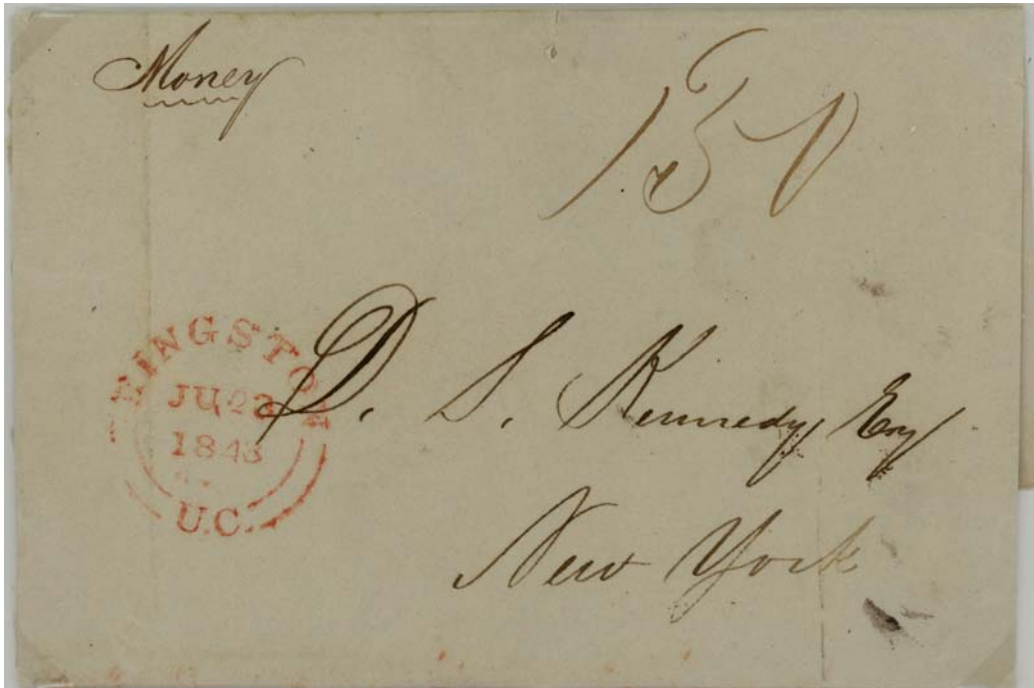 Money
KINGSTON
JU 23
1843
U.C.
D. S. Kennedy, Esq
New York